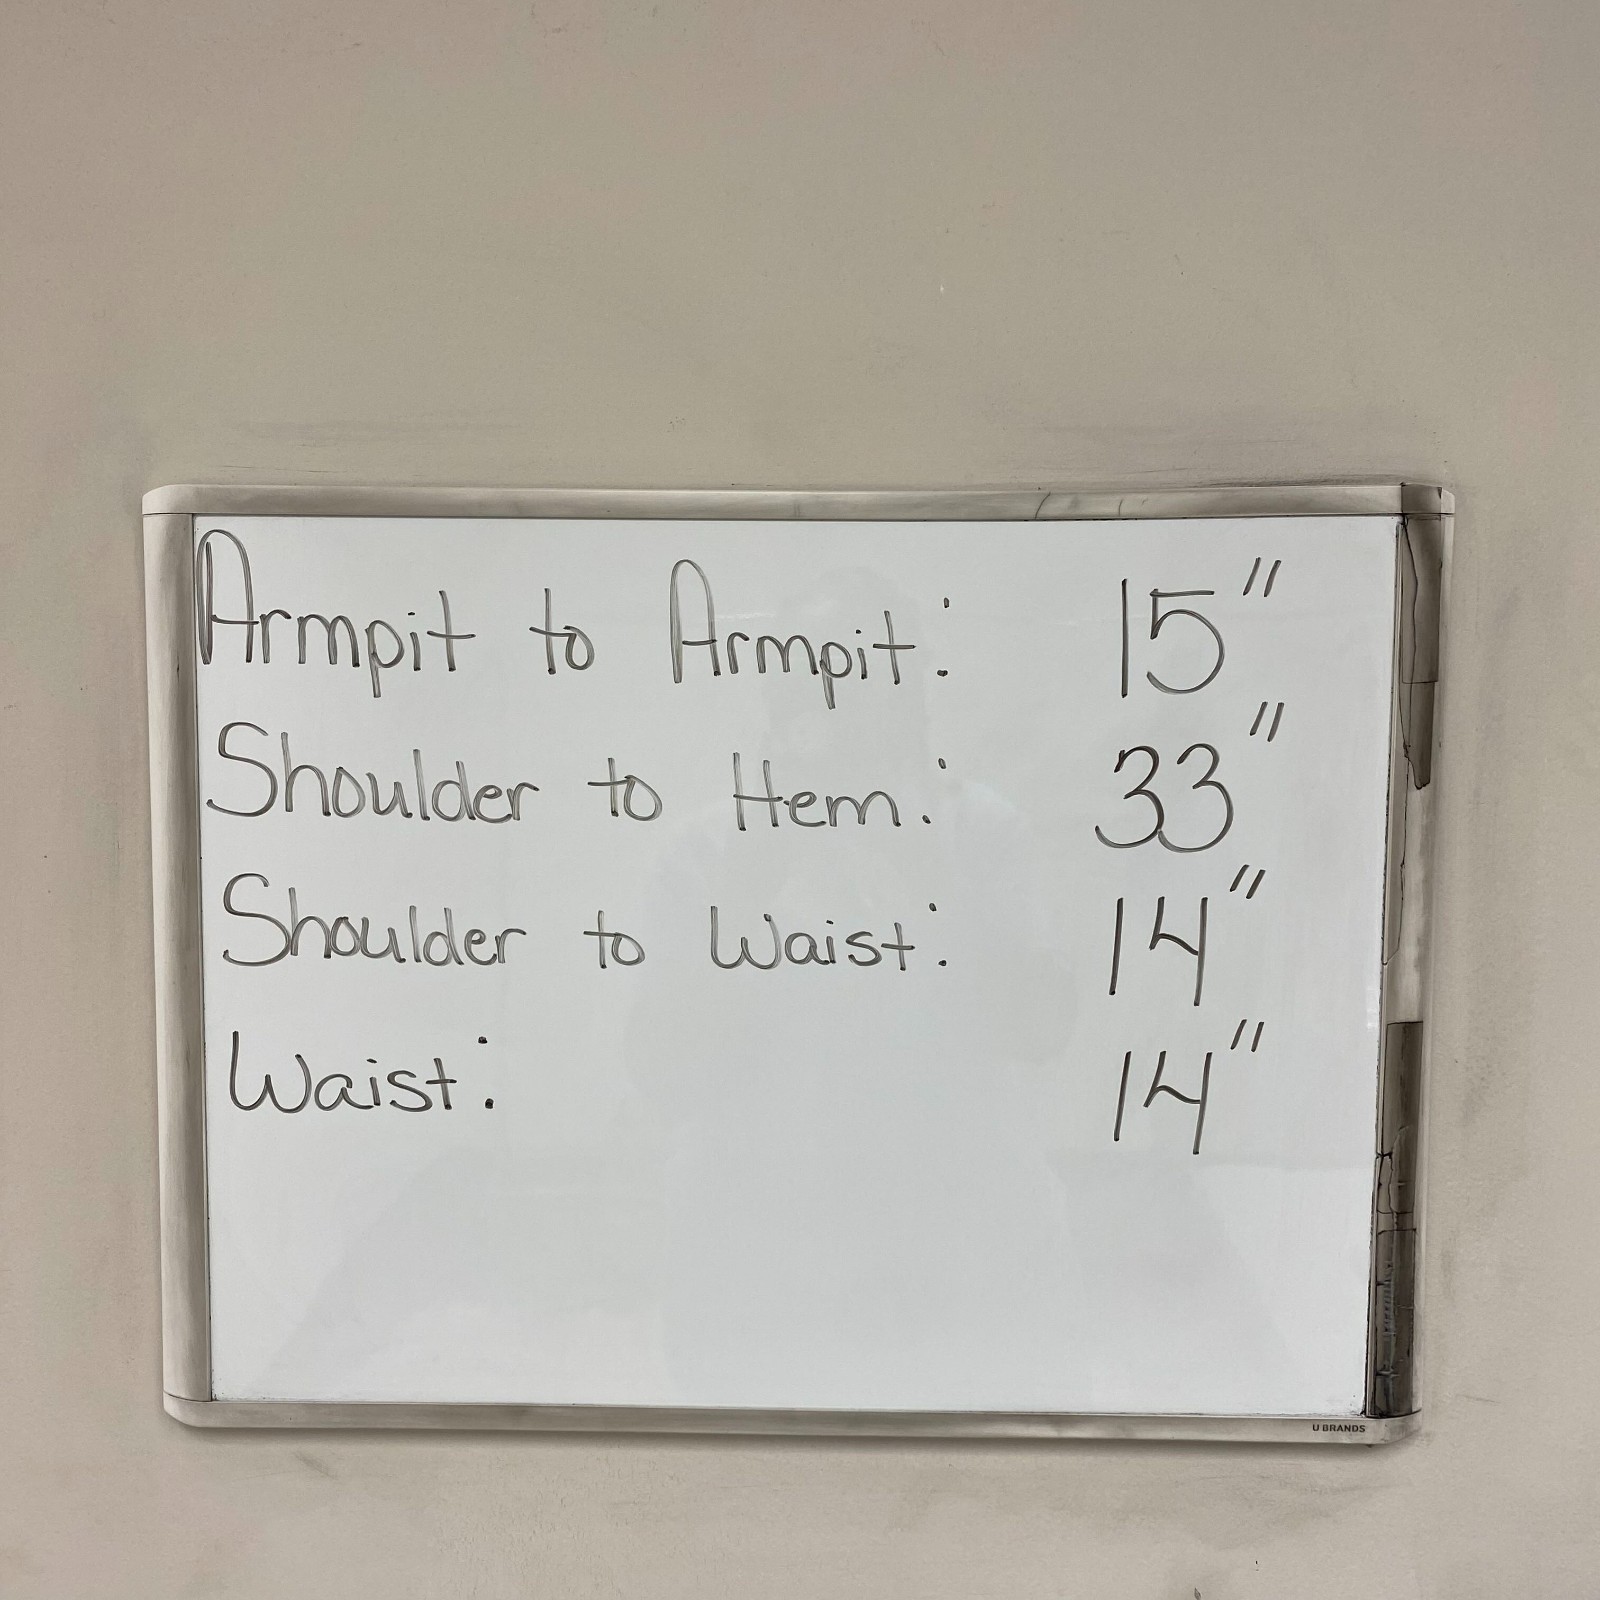 Armpit to Armpit: 15"
Shoulder to Hem: 33"
Shoulder to Waist: 14"
Waist: 14"
U BRANDS